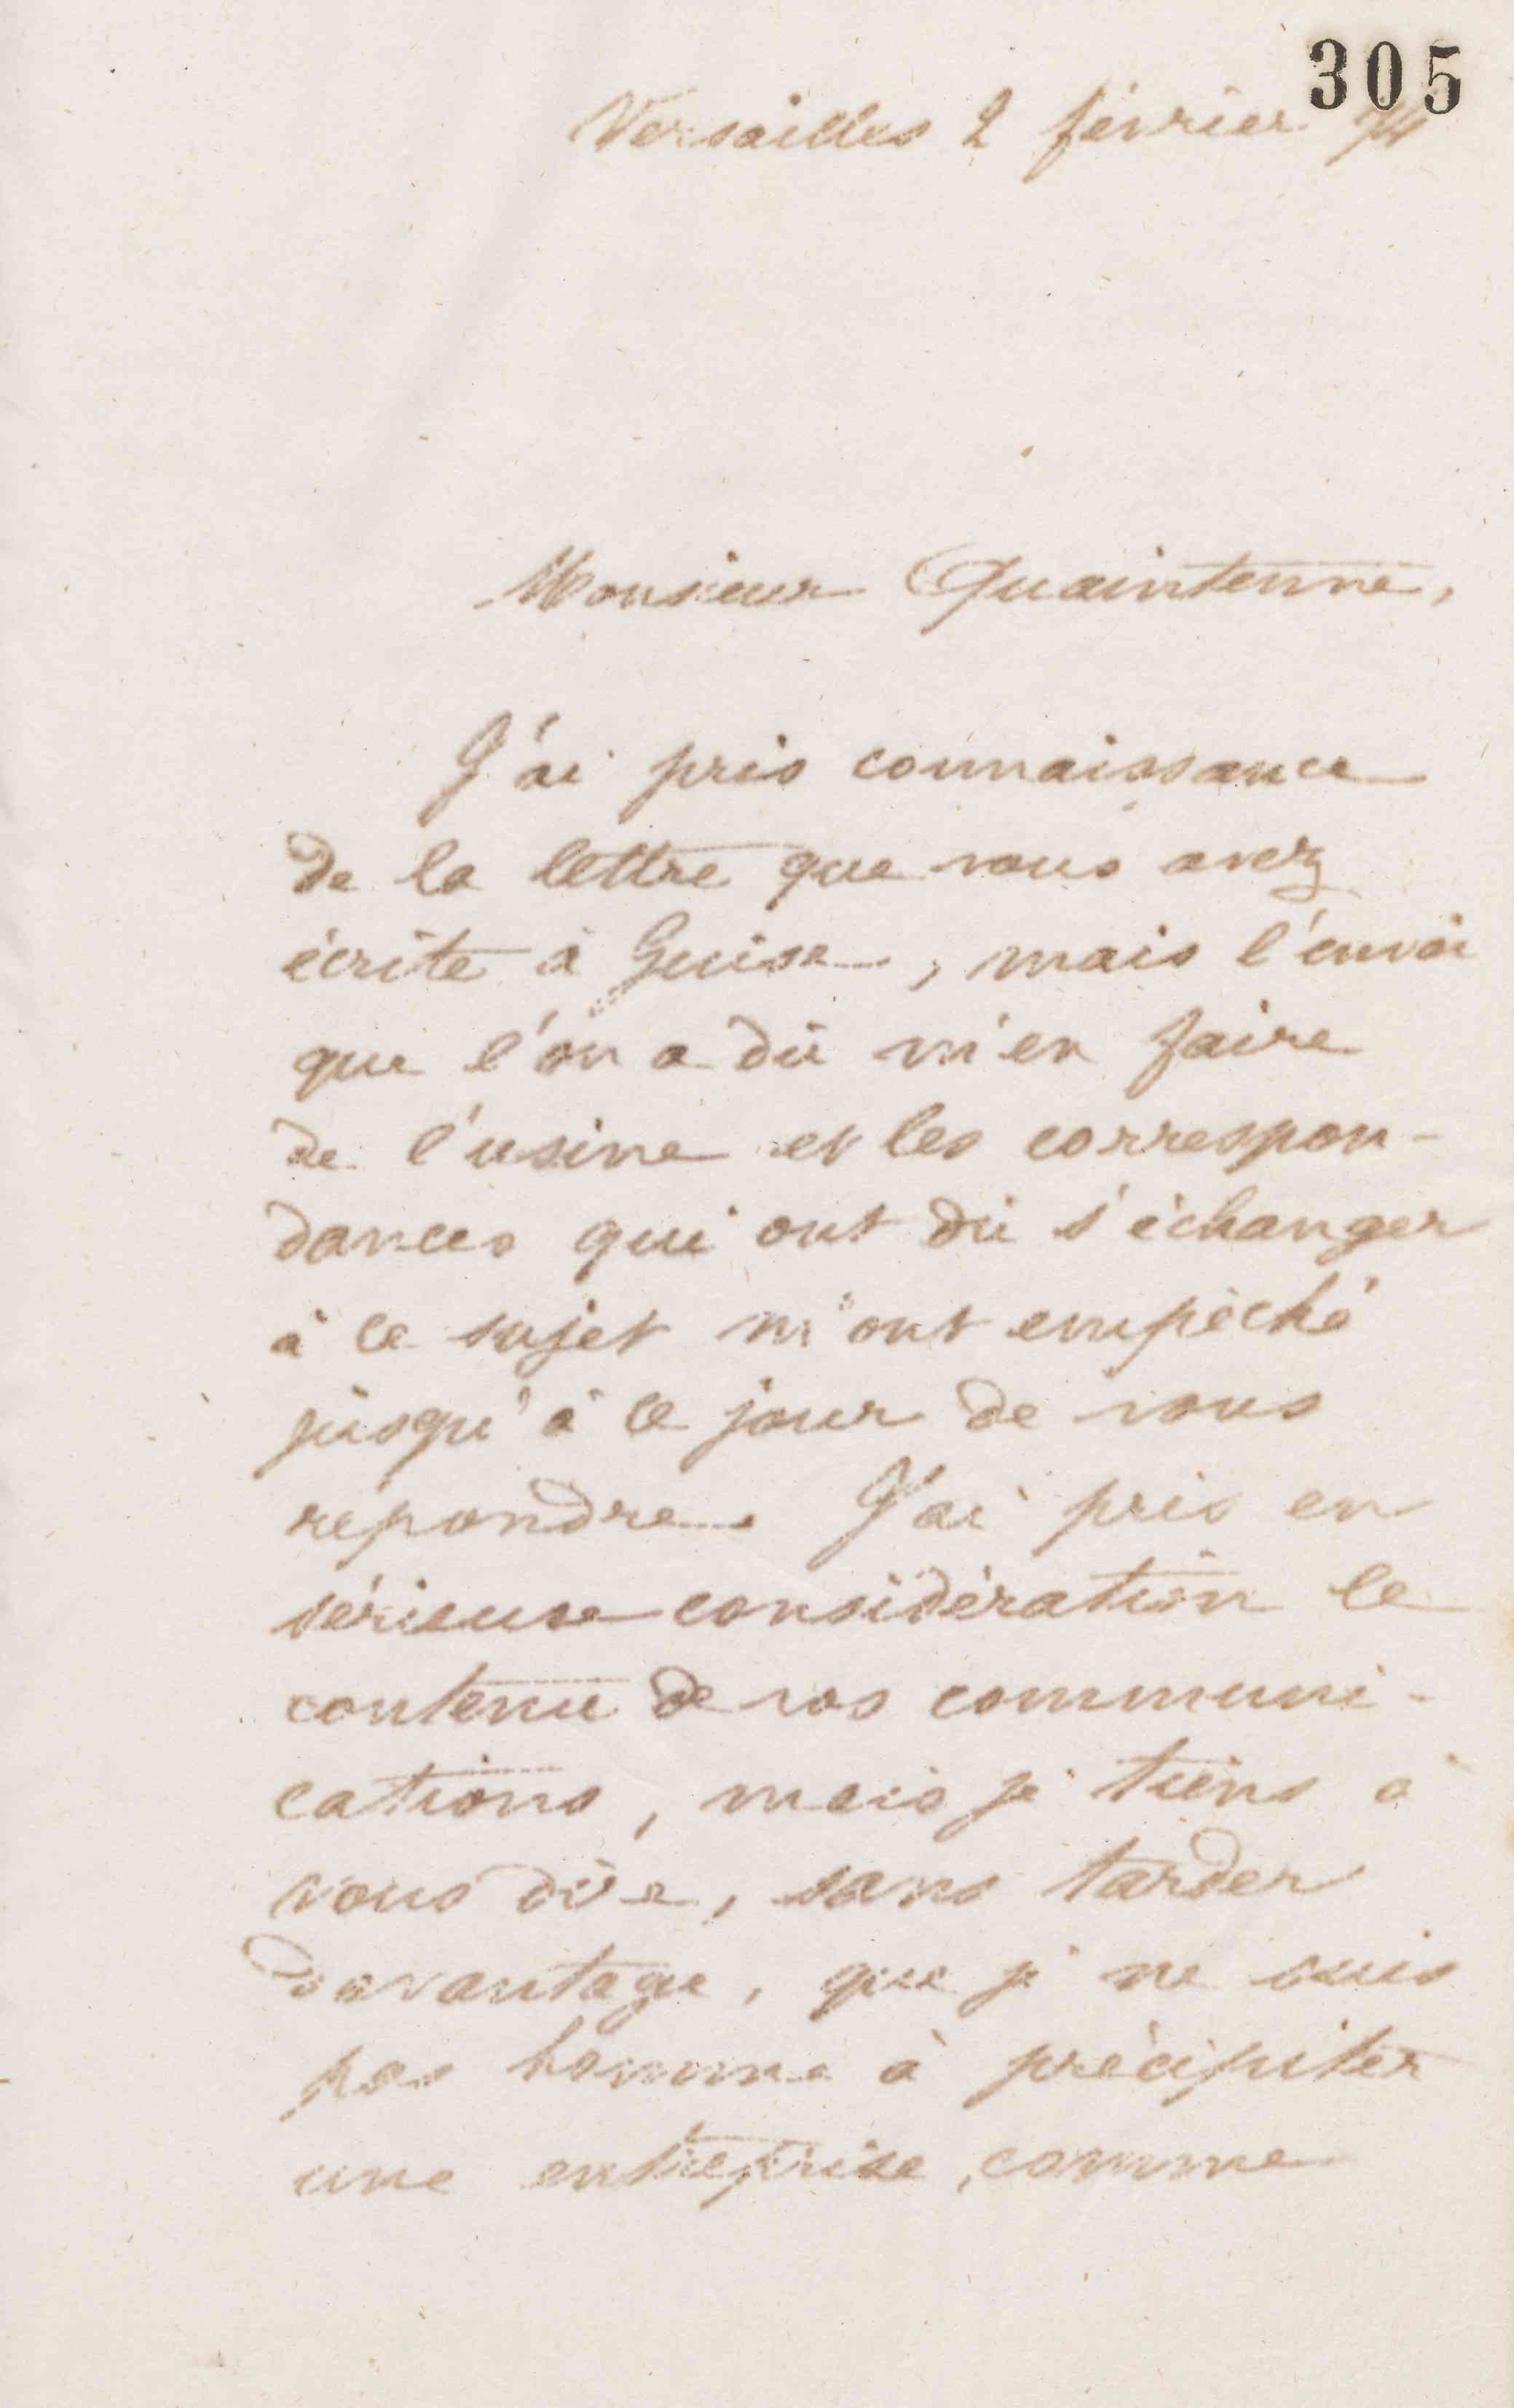 305
Versailles 2 février 74
Monsieur Quaintenne,
J'ai pris connaissance
de la lettre que vous avez
écrite à Guise, mais l'envoi
que l'on a dû m'en faire
de l'usine et les correspon-
dances qui ont dû s'échanger
à ce sujet m'ont empêché
jusqu'à ce jour de vous
répondre. J'ai pris en
sérieuse considération le
contenu de vos communi-
cations, mais je tiens à
vous dire, sans tarder
davantage, que je ne suis
pas homme à précipiter
une entreprise, comme